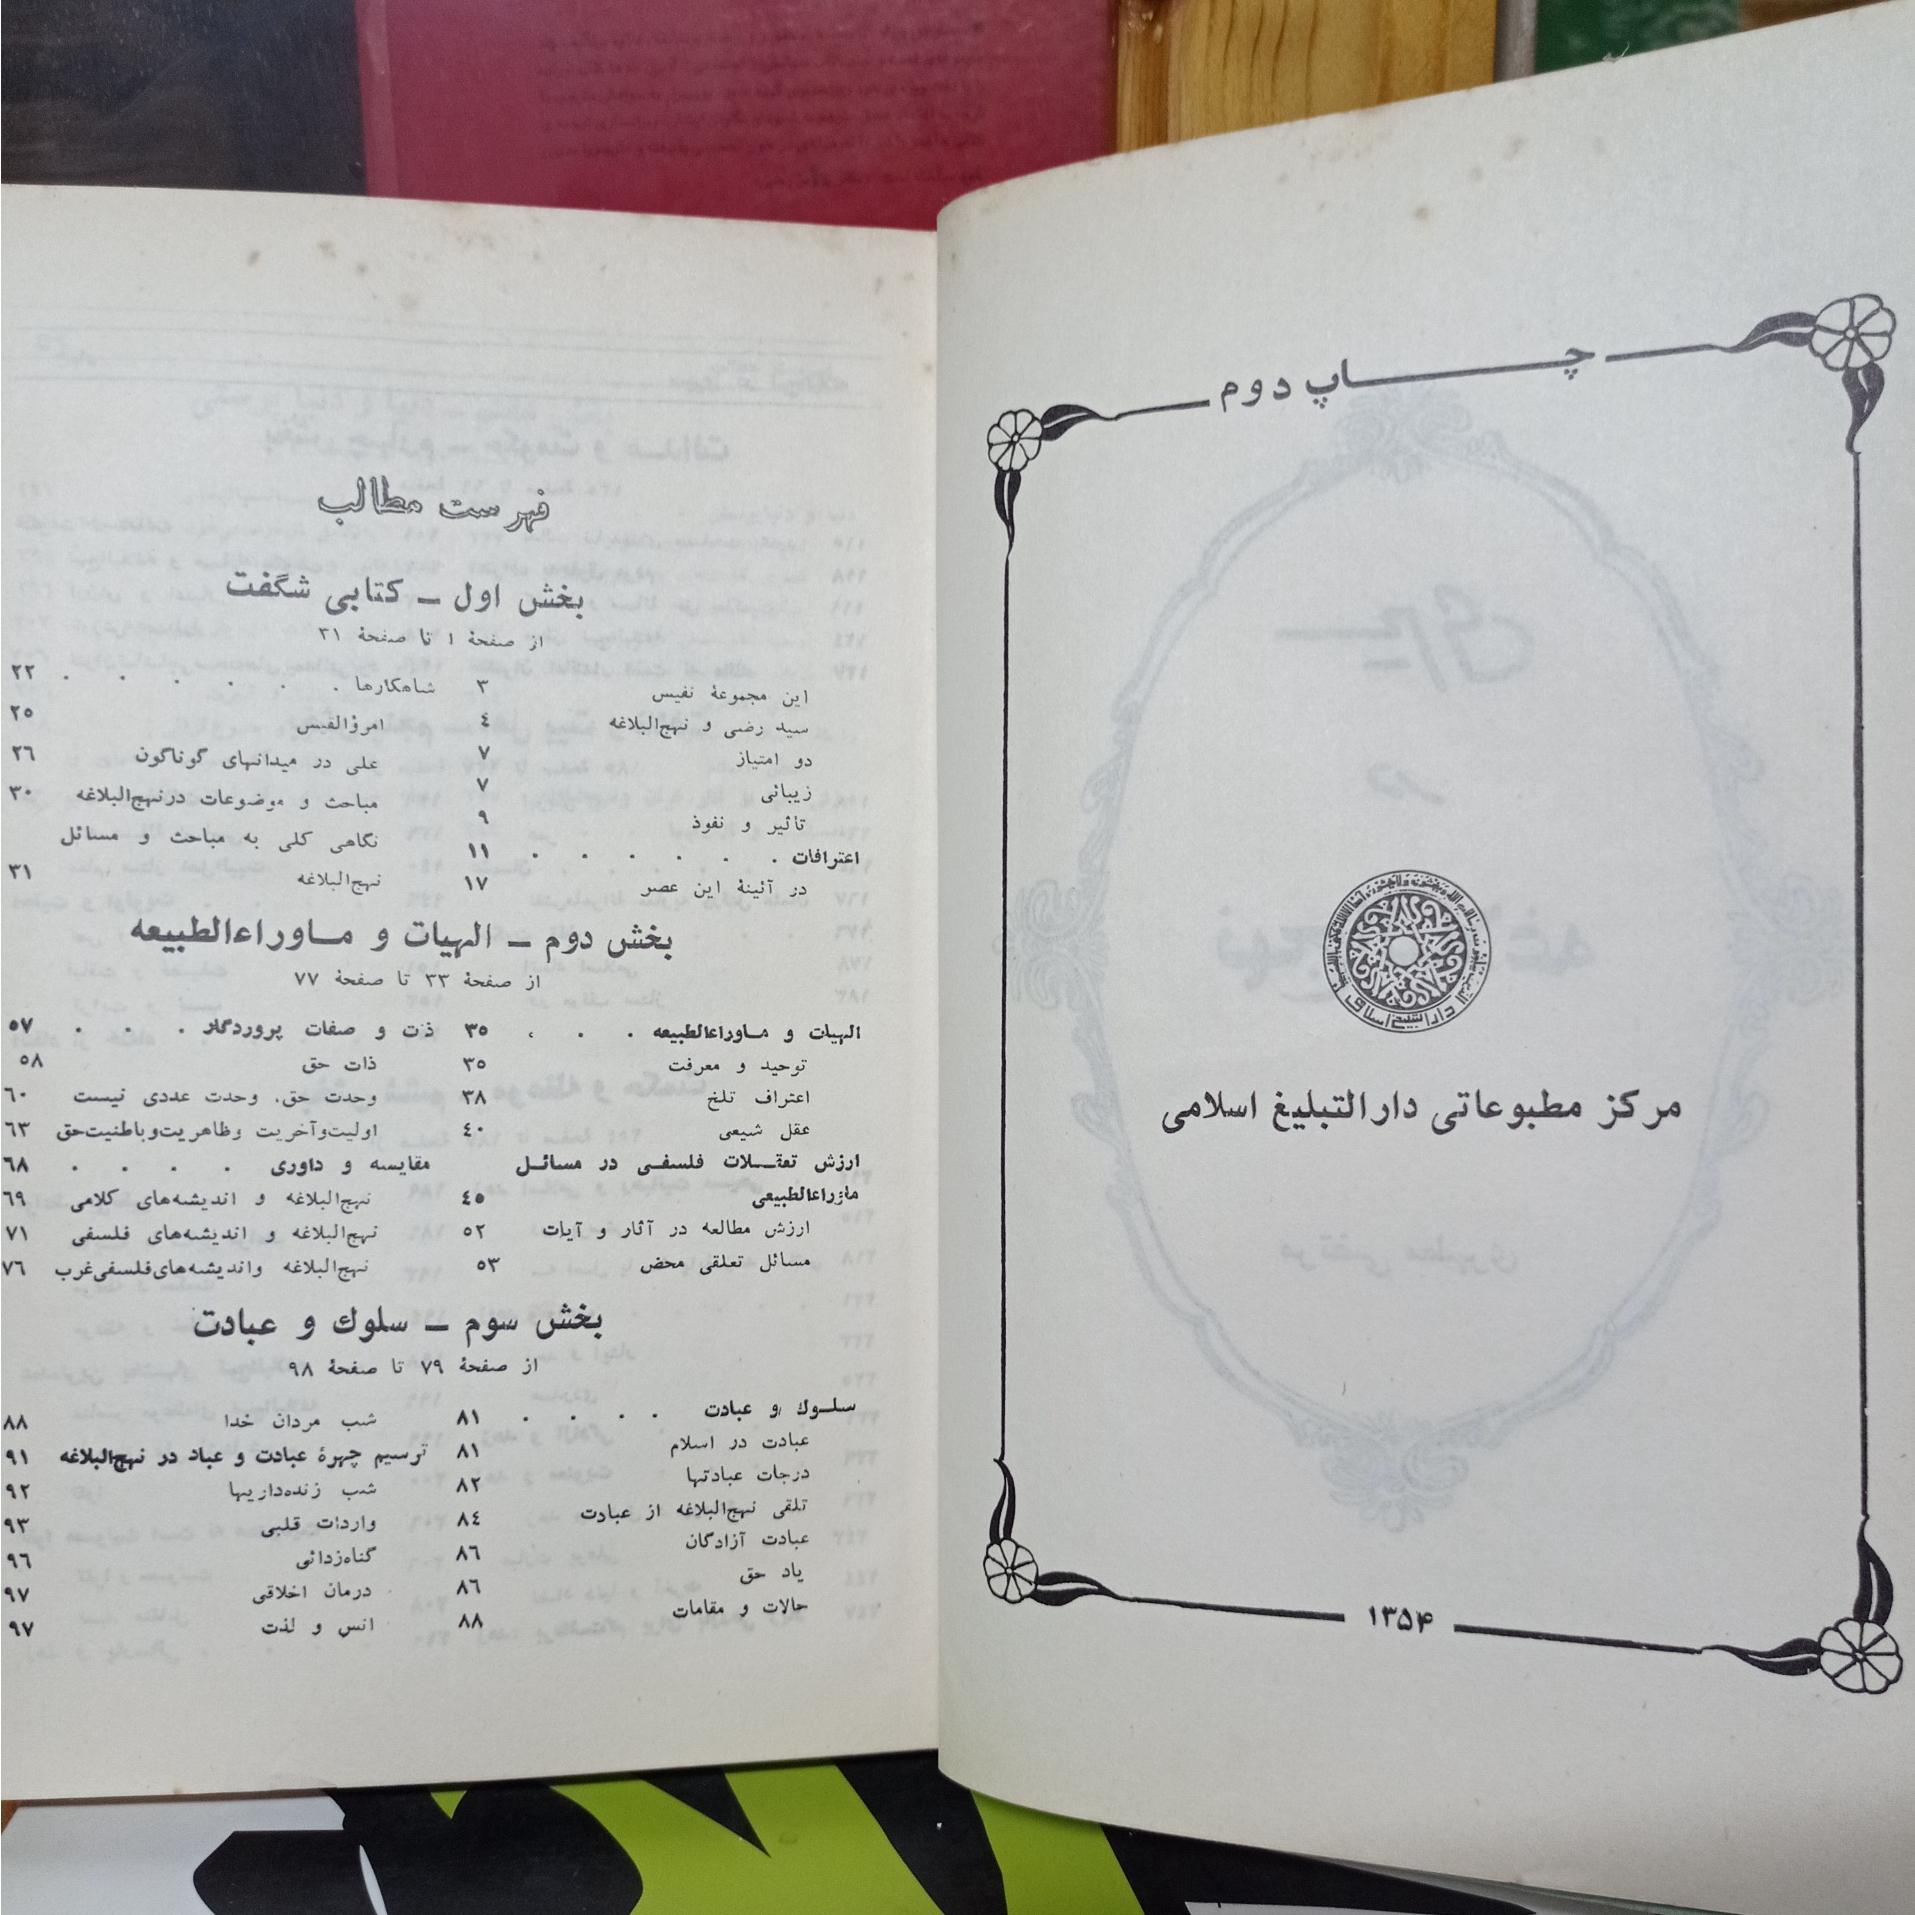 چاپ دوم
مرکز مطبوعاتی دارالتبلیغ اسلامی
۱۳۵۴
فهرست مطالب
بخش اول ــ کتابی شگفت
از صفحهٔ ۱ تا صفحهٔ ۳۱
این مجموعهٔ نفیس ۳
سید رضی و نهج‌البلاغه ٤
دو امتیاز ۷
زیبائی ۷
تأثیر و نفوذ ۹
اعترافات . . . . . . ۱۱
در آئینهٔ این عصر ۱۷
شاهکارها . . . . . . ۲۲
امرؤالقیس ۲۵
علی در میدانهای گوناگون ۲٦
مباحث و موضوعات در نهج‌البلاغه ۳۰
نگاهی کلی به مباحث و مسائل
نهج‌البلاغه ۳۱
بخش دوم ــ الهیات و مــاوراءالطبیعه
از صفحهٔ ۳۳ تا صفحهٔ ۷۷
الهیات و مــاوراءالطبیعه . . . ۳۵
توحید و معرفت ۳۵
اعتراف تلخ ۳۸
عقل شیعی ٤۰
ارزش تعقــلات فلسفــی در مسائــل
ماوراءالطبیعی ٤۵
ارزش مطالعه در آثار و آیات ۵۲
مسائل تعلقی محض ۵۳
ذت و صفات پروردگار . . . ۵۷
ذات حق ۵۸
وحدت حق، وحدت عددی نیست ٦۰
اولیت‌وآخریت وظاهریت‌وباطنیت‌حق ٦۳
مقایسه و داوری . . . . ٦۸
نهج‌البلاغه و اندیشه‌های کلامی ٦۹
نهج‌البلاغه و اندیشه‌های فلسفی ۷۱
نهج‌البلاغه واندیشه‌های‌فلسفی‌غرب ۷٦
بخش سوم ــ سلوك و عبادت
از صفحهٔ ۷۹ تا صفحهٔ ۹۸
سلــوك و عبادت . . . . ۸۱
عبادت در اسلام ۸۱
درجات عبادتها ۸۲
تلقی نهج‌البلاغه از عبادت ۸٤
عبادت آزادگان ۸٦
یاد حق ۸٦
حالات و مقامات ۸۸
شب مردان خدا ۸۸
ترسیم چهرهٔ عبادت و عباد در نهج‌البلاغه ۹۱
شب زنده‌داریها ۹۲
واردات قلبی ۹۳
گناه‌زدائی ۹٦
درمان اخلاقی ۹۷
انس و لذت ۹۷